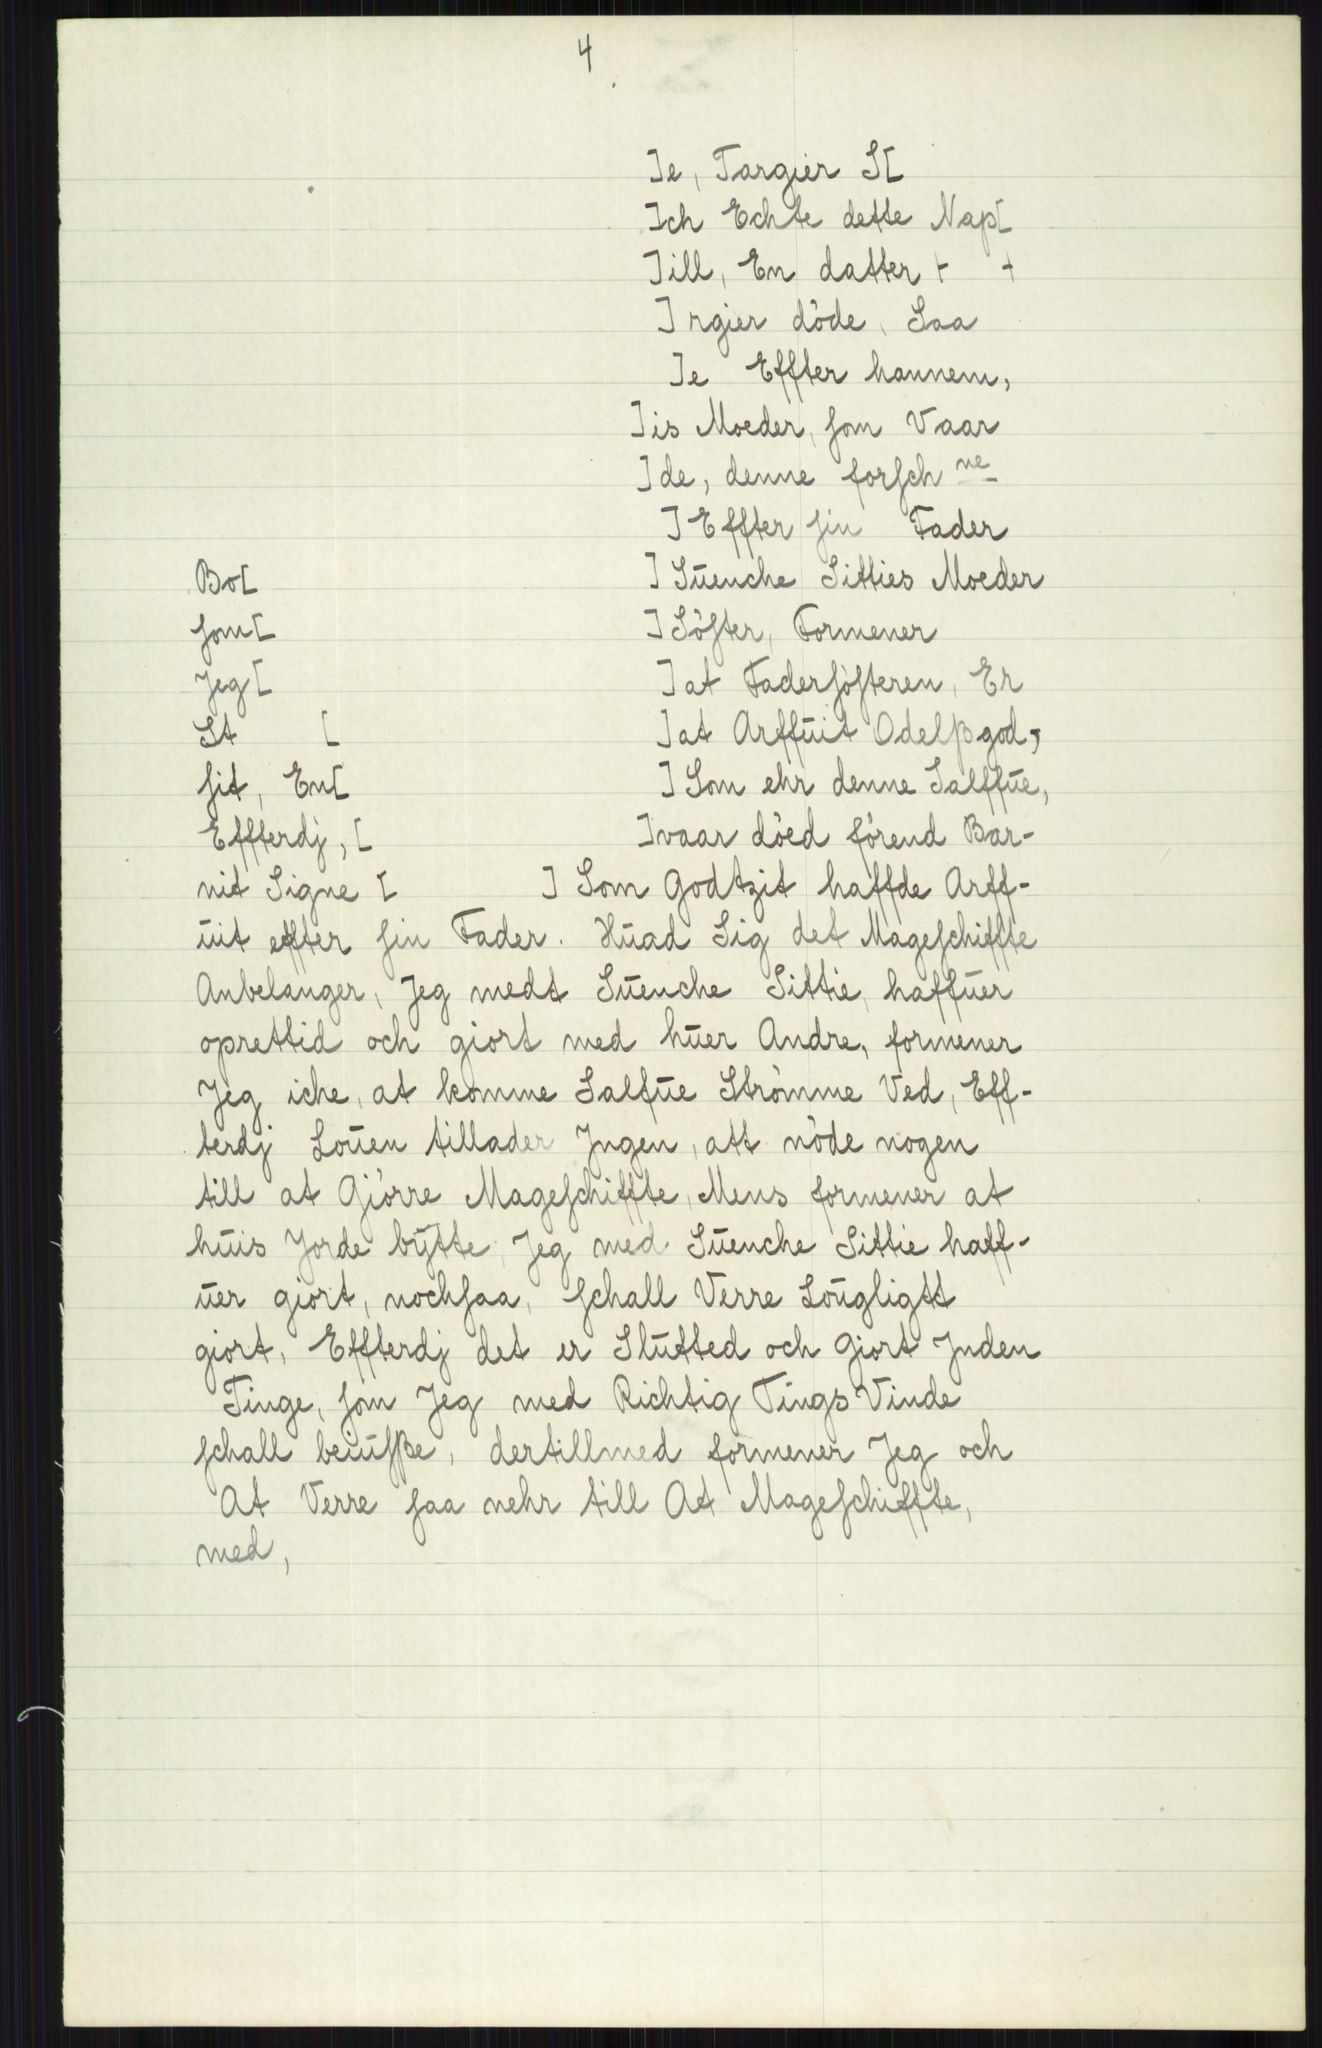 4
]e, Targier S[
]ch Echte dette Nap[
]ill, En datter + +
]rgier döde, Saa
]e Effter hannem,
]is Moeder, som Vaar
]de, denne forsch ne
] Effter sin Fader
Bo[ ] Sŭenche Sitties Moeder
som[ ] Söster, Formener
Jeg[ ] at Fadersösteren, Er
St [ ] at Arffŭit Odelßgod,
sit, En[ ] Som ehr denne Salffŭe,
Effterdj, [ ] vaar döed förend Bar-
nit Signe [ ] Som Godtzit haffde Arff-
ŭit effter sin Fader. Hŭad Sig det Mageschiffte
Anbelanger, Jeg medt Sŭenche Sittie, haffŭer
oprettid och giort med hŭer Andre, formener
Jeg iche, at komme Salfŭe Strömme Ved, Eff-
terdj Loŭen tillader Jngen, att nöde nogen
till at Giörre Mageschiffte, Mens formener at
hŭis Jorde bÿtte, Jeg med Sŭenche Sittie haff-
ŭer giort, nochsaa, schall Verre Loŭgligtt
giort, Effterdj det er Slŭtted och Giort Jnden
Tinge, som Jeg med Richtig Tings Vinde
schall beŭisße, dertillmed formener Jeg och
At Verre saa nehr till At Mageschiffte,
med,